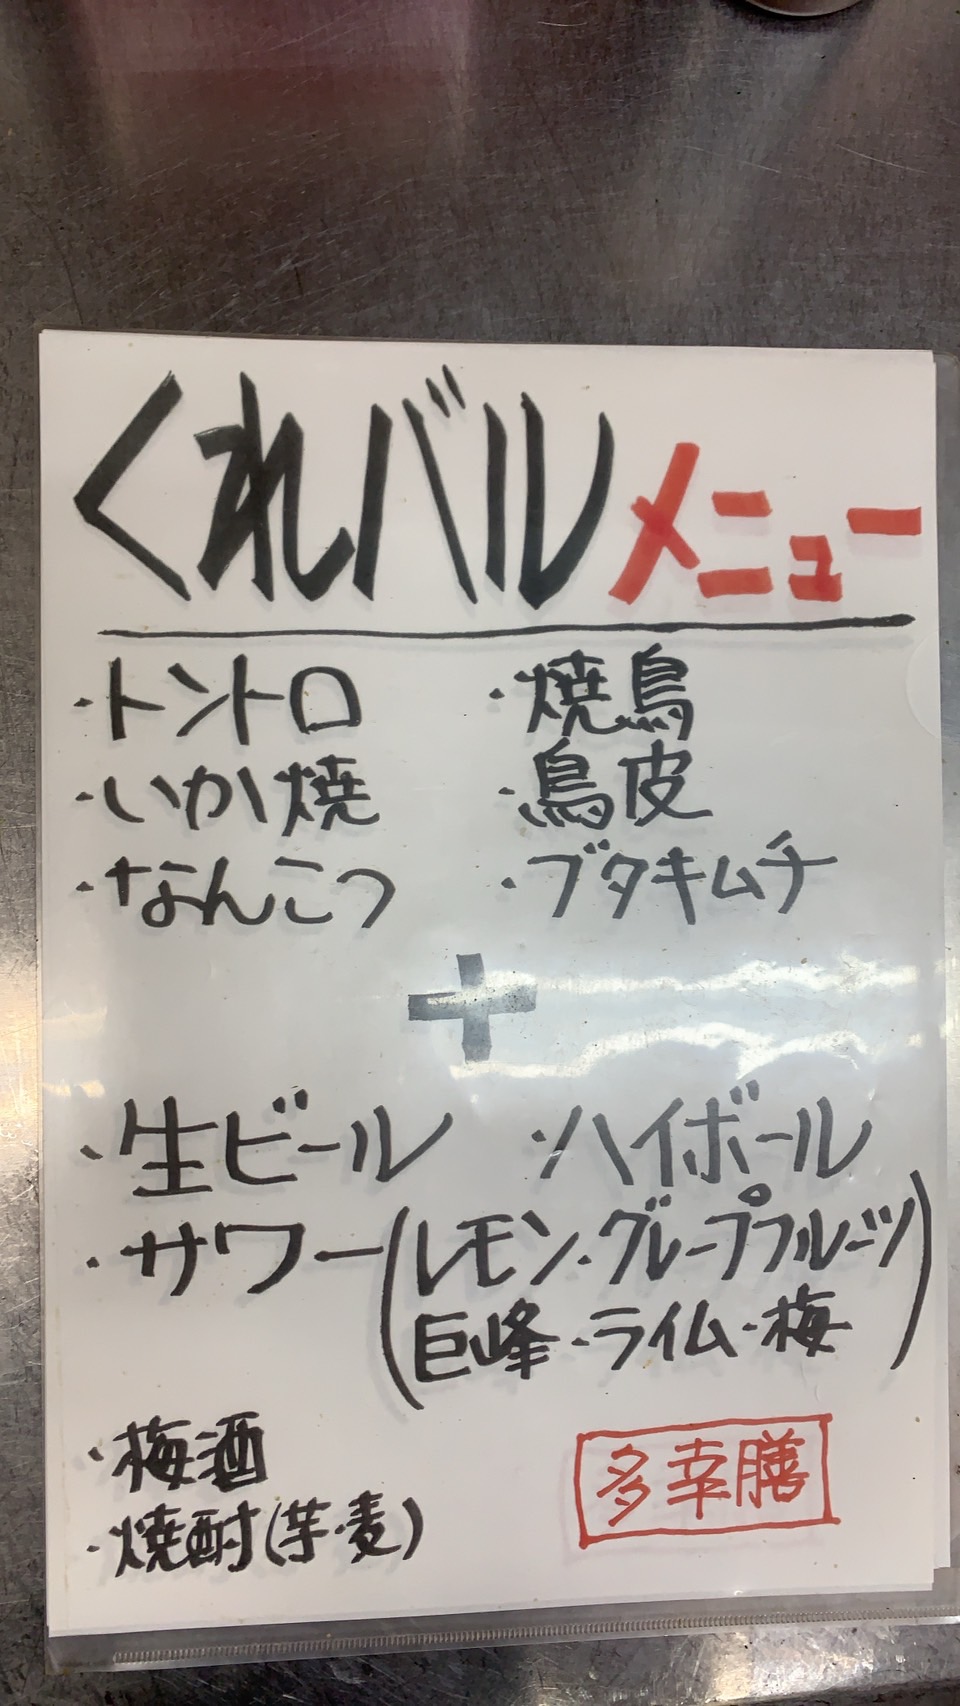 くれバルメニュー
・トントロ ・焼鳥
・いか焼 ・鳥皮
・なんこつ ・ブタキムチ
+
・生ビール ・ハイボール
・サワー(レモン・グレープフルーツ
巨峰・ライム・梅)
・梅酒
・焼酎(芋・麦)
多幸膳